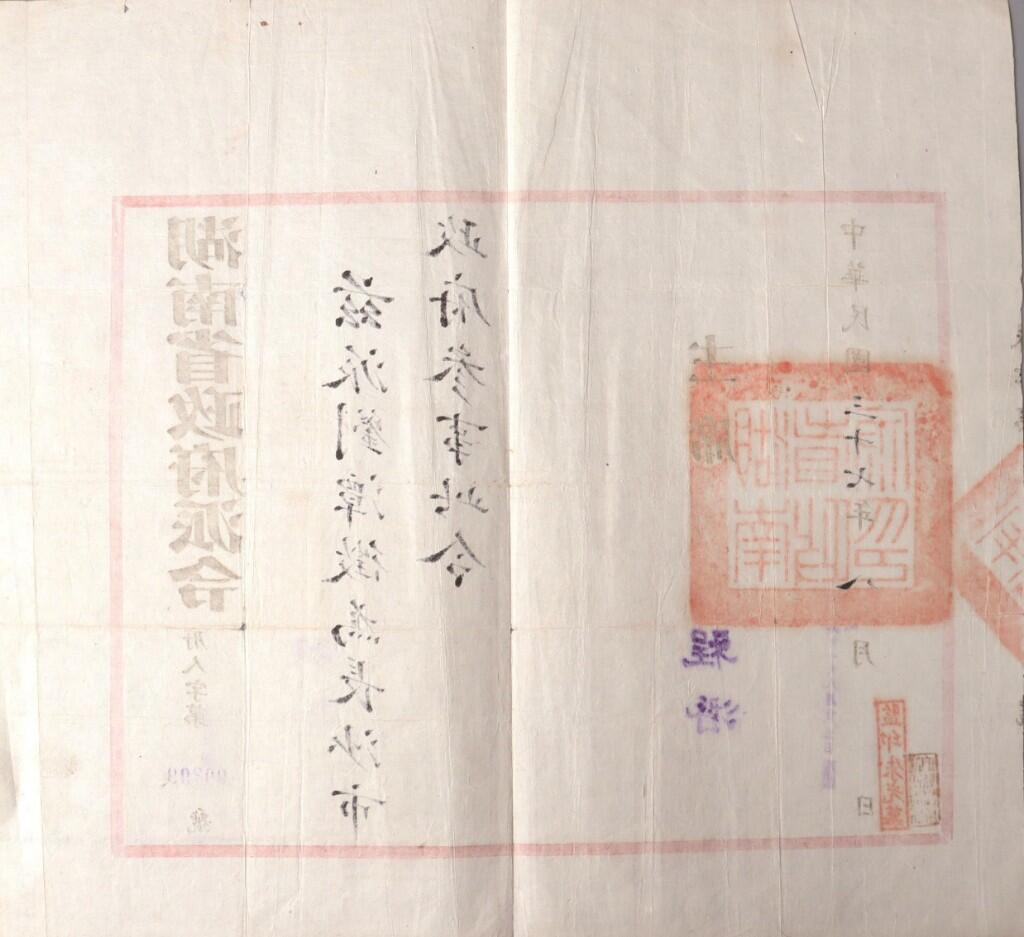 湖南省政府派令
府人字第 號
茲派劉漳徵為長沙市
政府參事此令
主席 程潛
中華民國三十七年八月 日
湖南省政府印
監印朱